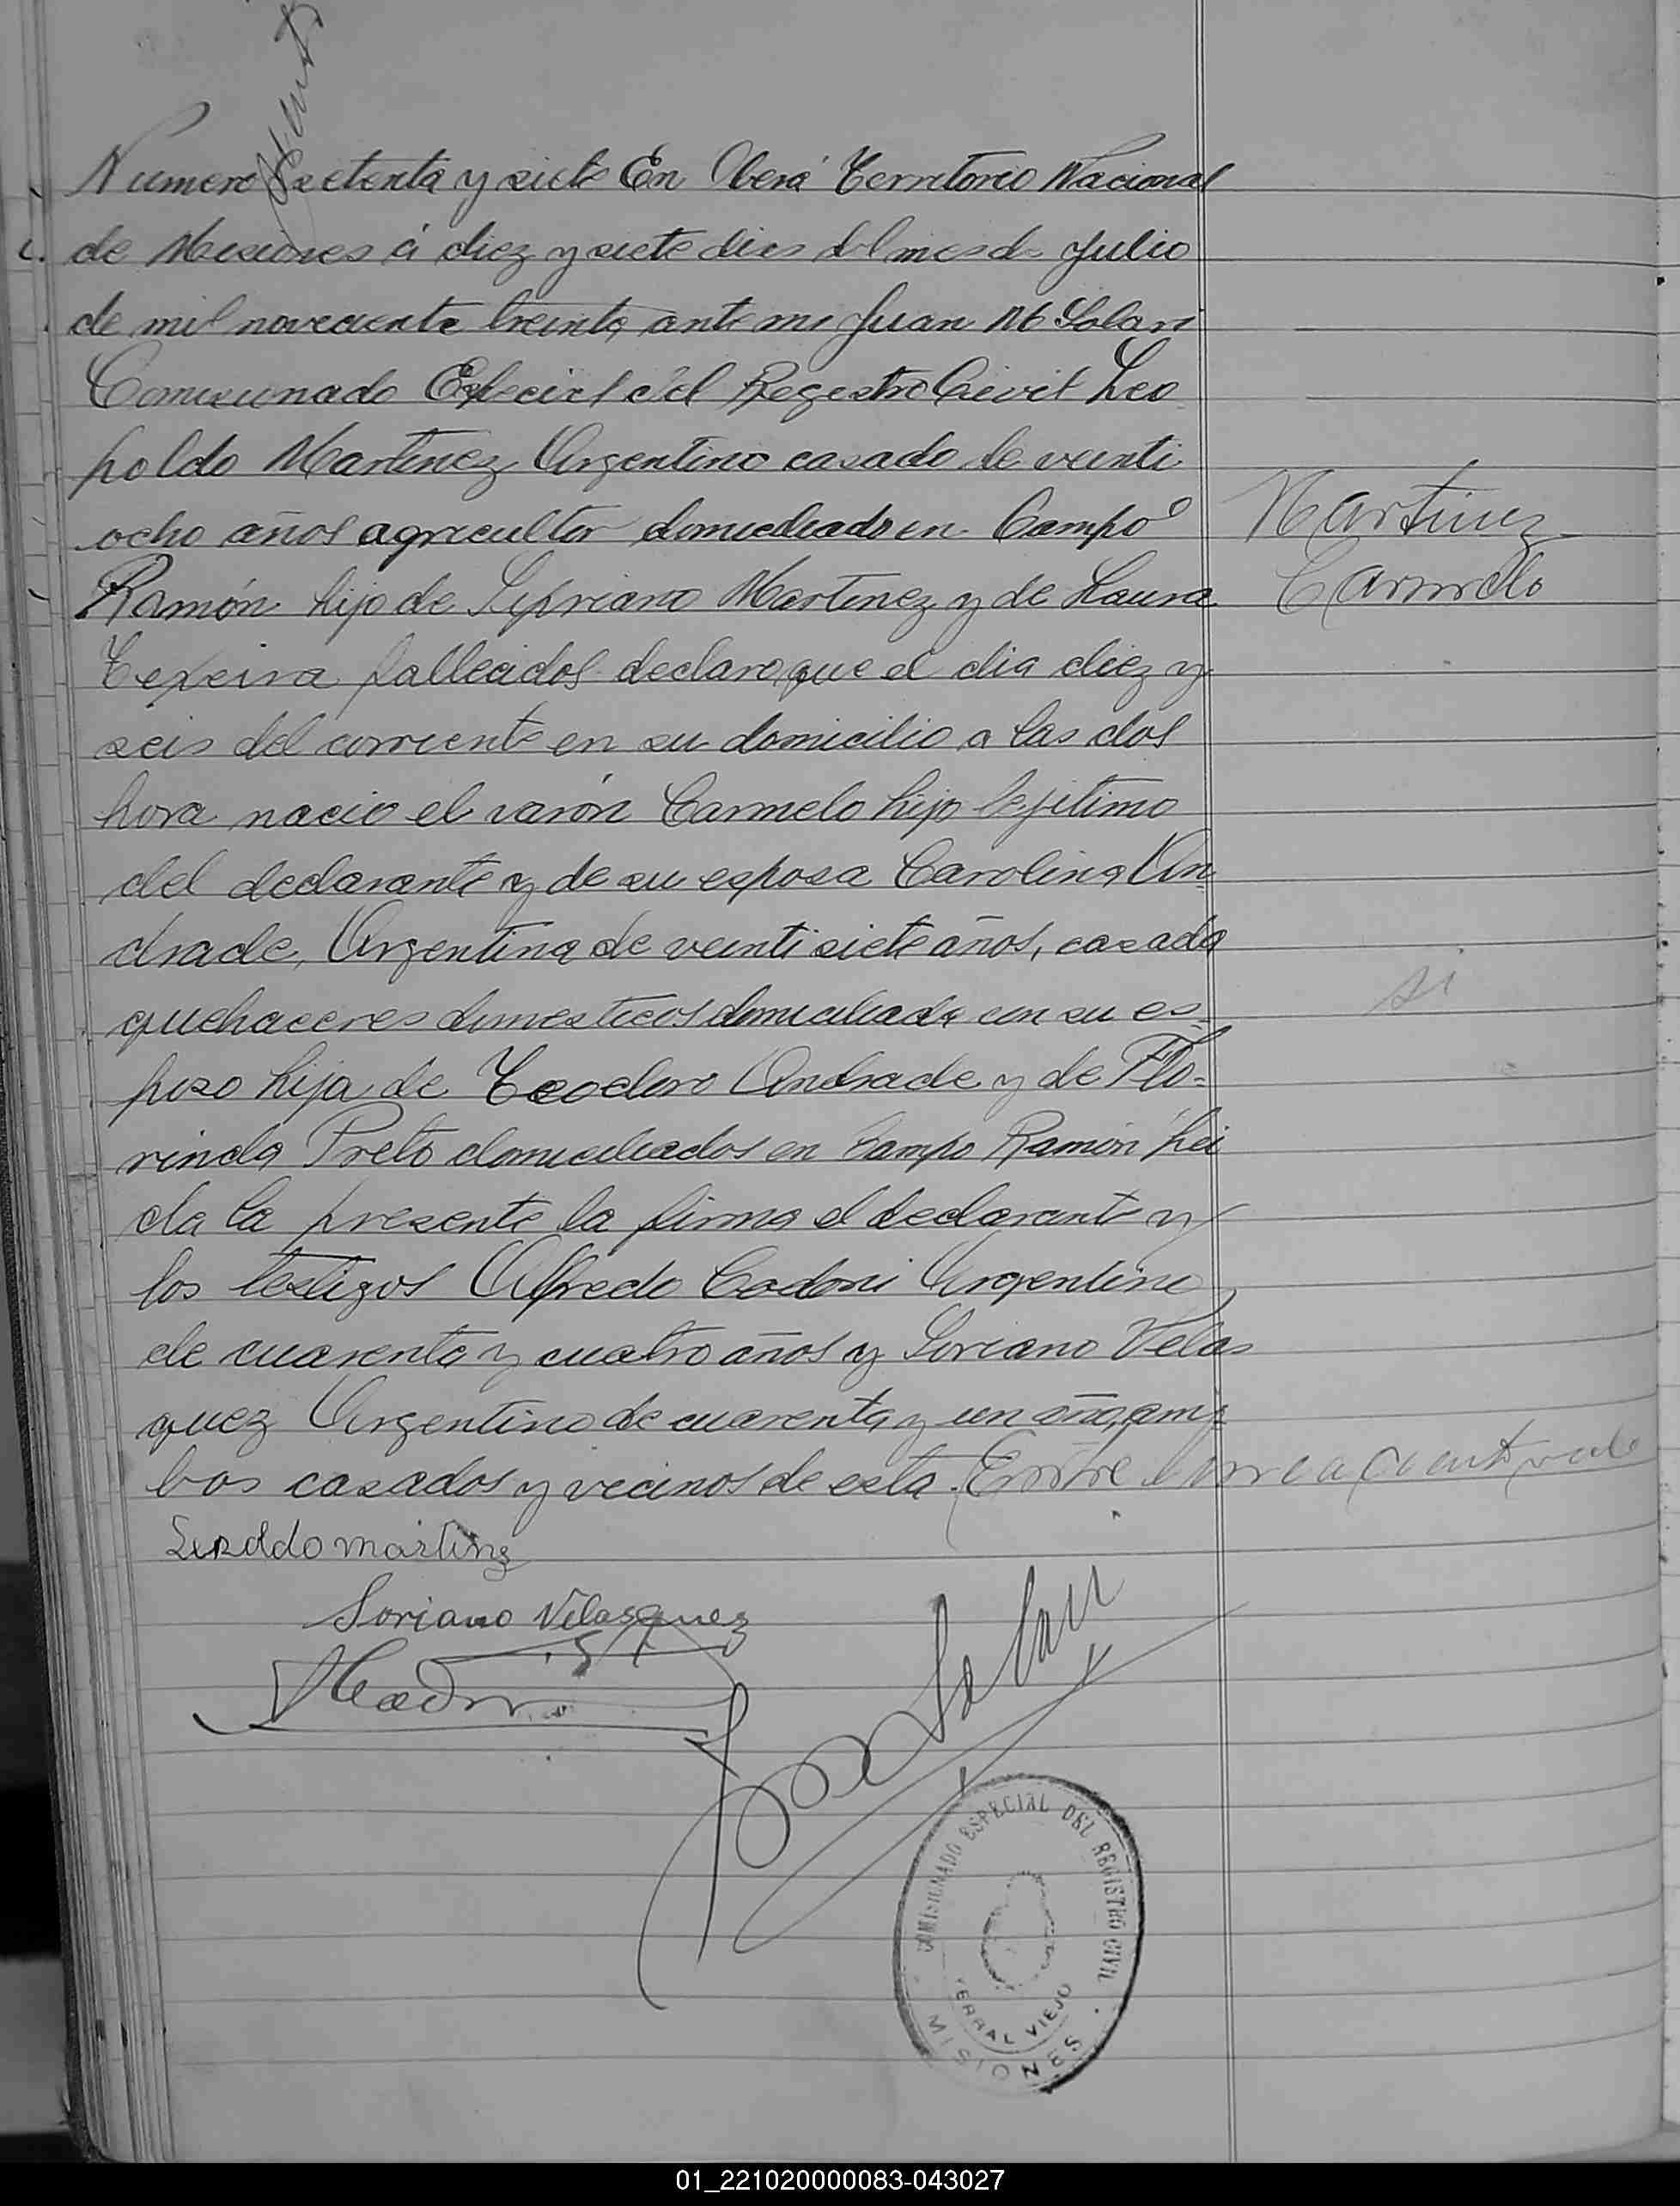 Numero setenta y siete En Oberá Territorio Nacional
de Misiones á diez y siete dias del mes de Julio
de mil noveciento treinta, ante mi Juan M Solari
Comisionado Especial del Registro Civil Leo
poldo Martinez Argentino casado de veinti
ocho años agricultor domiciliado en Campo
Ramón hijo de Sipriano Martinez y de Laura
Texeira fallecidos declaro que el dia diez y
seis del corriente en su domicilio a las dos
hora nacio el varón Carmelo hijo lejitimo
del declarante y de su esposa Carolina An
drade, Argentina de veinti siete años, casada
quehaceres domesticos domiciliada con su es
poso hija de Teodoro Andrade y de Flo-
rinda Preto domiciliados en Campo Ramón lei
da la presente la firma el declarante y
los testigos Alfredo Cadoni Argentino
de cuarenta y cuatro años y Soriano Velas
quez Argentino de cuarenta y un año, am-
bos casados y vecinos de esta. Entre vale
Martinez
Carmelo
si
Leopoldo martinez
Soriano Velasquez
J M Solari
COMISIONADO ESPECIAL DEL REGISTRO CIVIL
YERBAL VIEJO
MISIONES
01_221020000083-043027